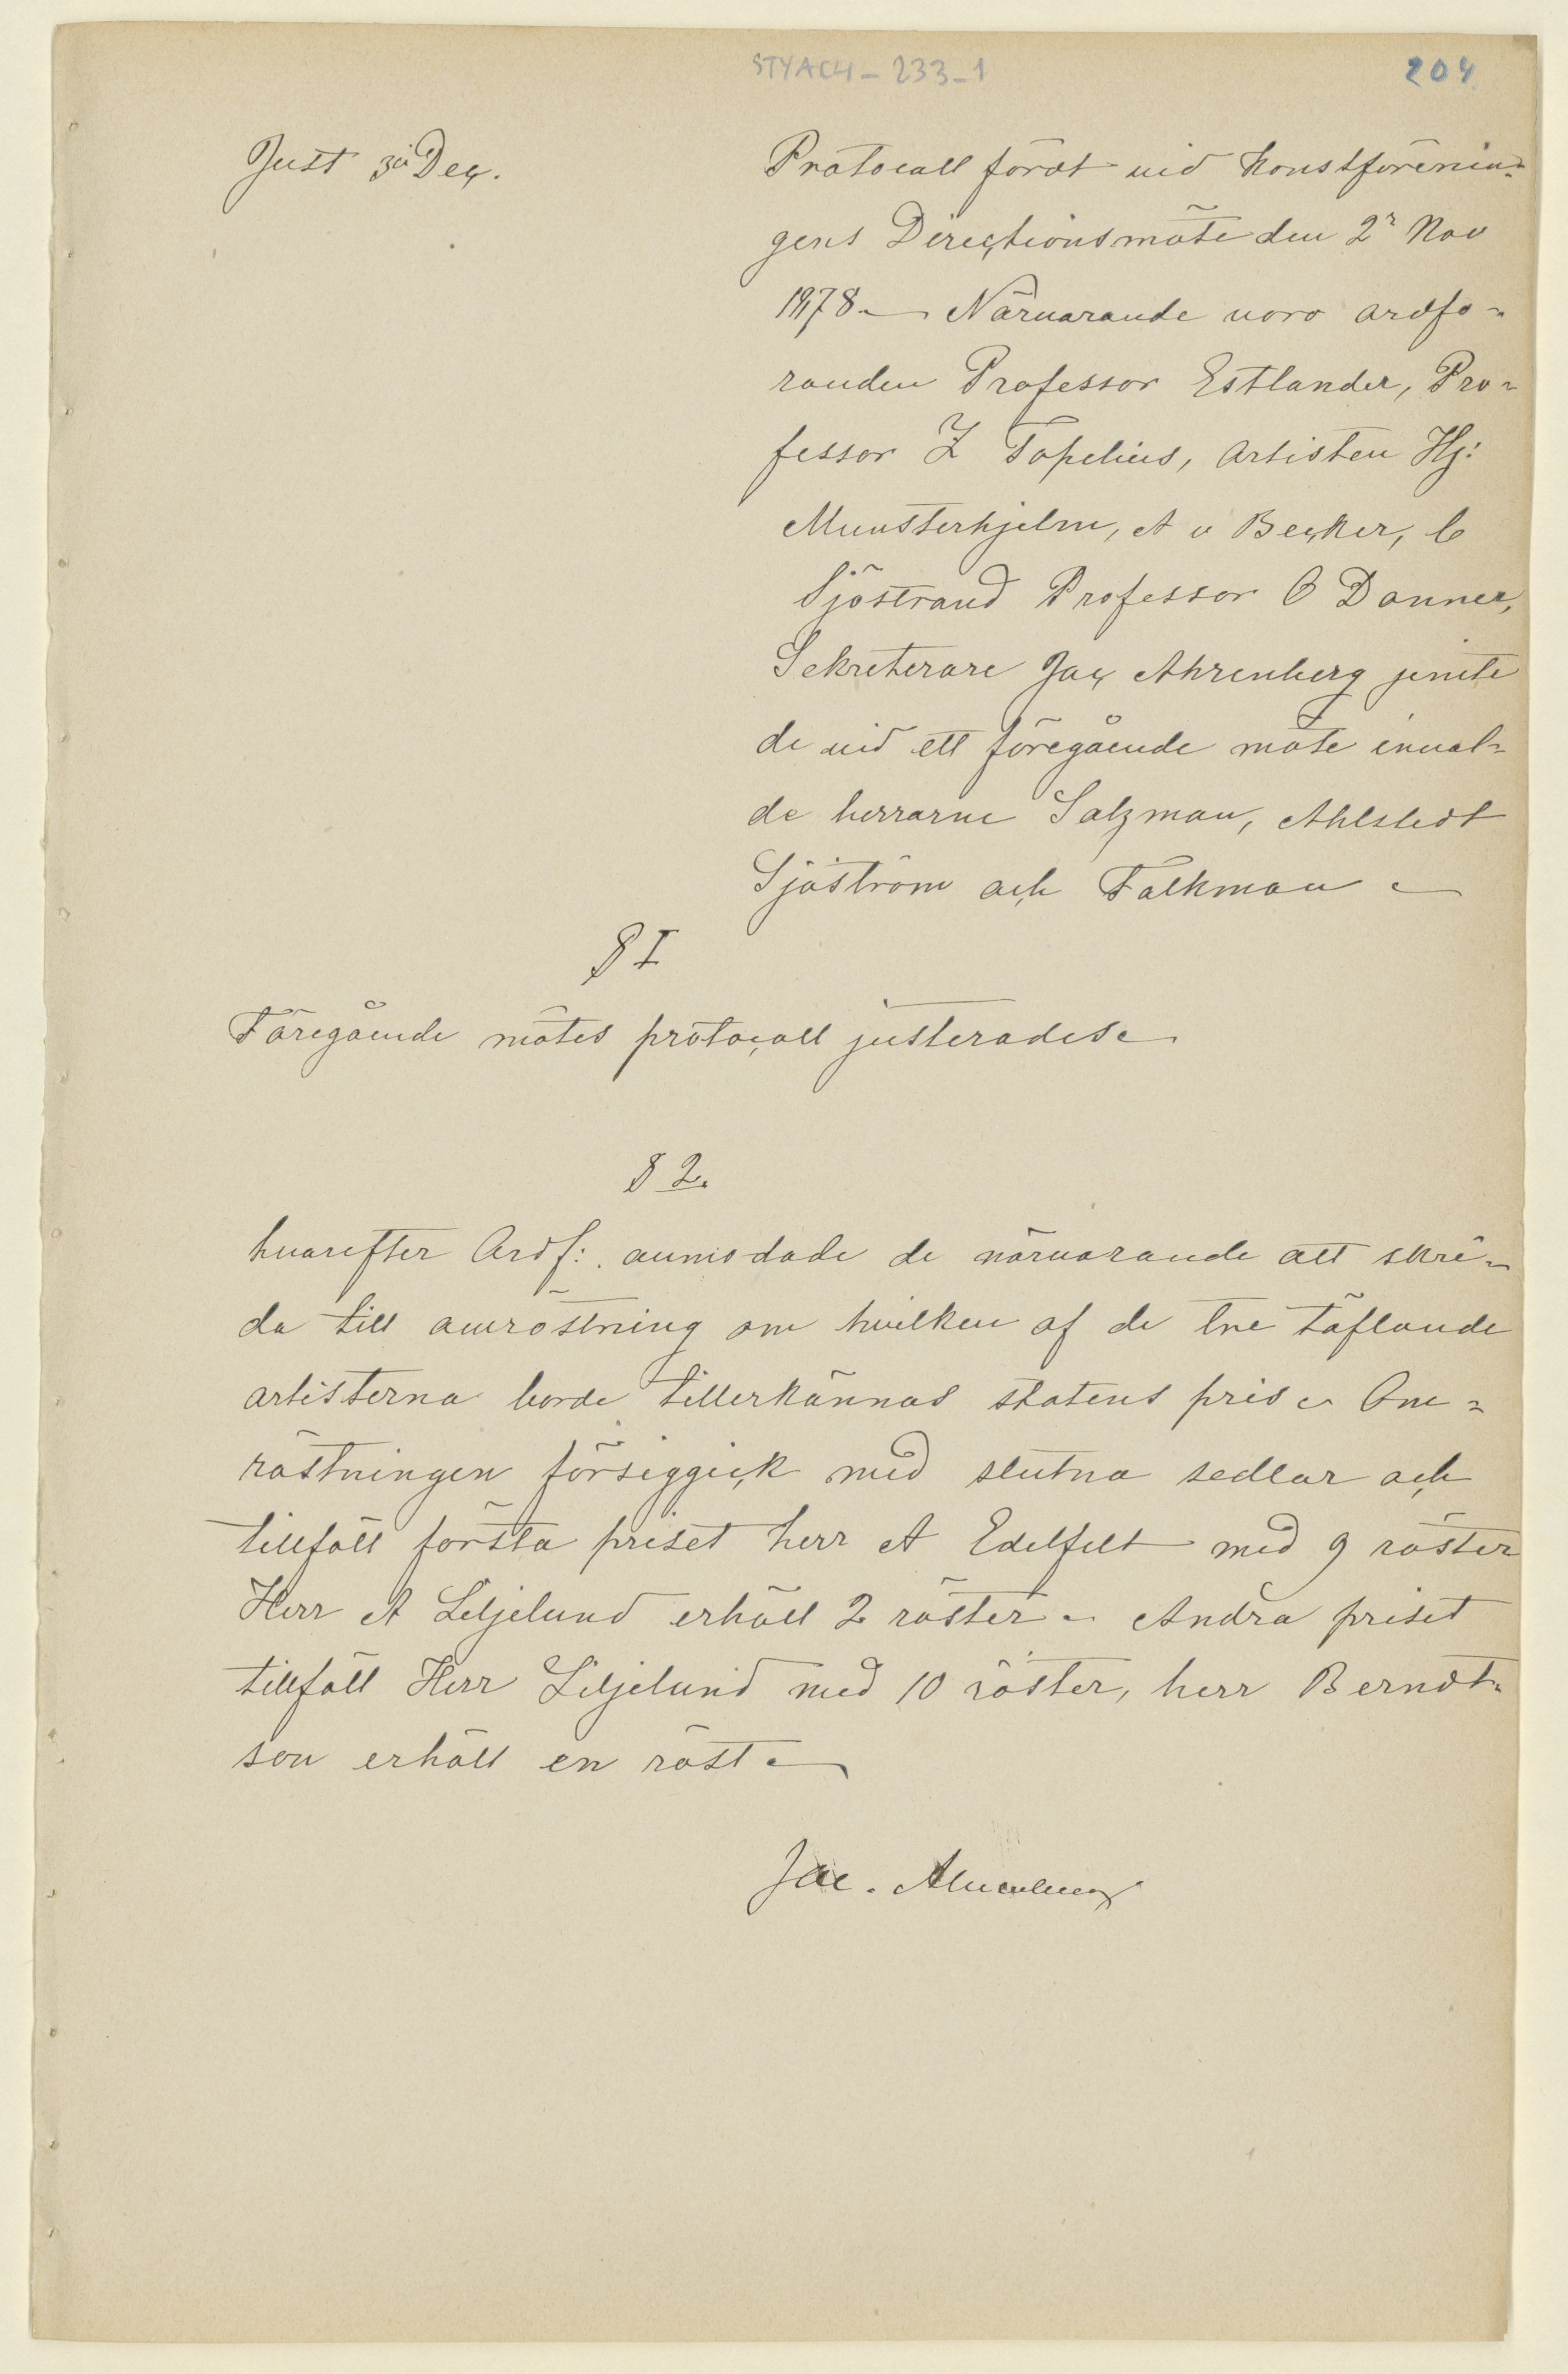 STYACH-233-1
204
Just 3ji Dec.
Protocall fördt vid Konstförenin=
gens Directionsmöte den 2r Nov
1878. — Närvarande voro ordfö-
randen Professor Estlander, Pro-
fessor Z Topelius, Artisten Hj:
Munsterhjelm, A v Becker, C
Sjöstrand Professor O Donner,
Sekreterare Jac Ahrenberg jemte
de vid ett föregående möte inval-
de herrarne Salzman, Ahlstedt
Sjöström och Falkman —
§ I
Föregående mötes protocall justerades.
§ 2.
hvarefter Ordf: anmodade de närvarande att skri-
da till omröstning om hvilken af de tre täflande
artisterna borde tillerkännas statens pris. Om=
röstningen försiggick med slutna sedlar och
tillföll första priset herr A Edelfelt med 9 röster
Herr A Liljelund erhöll 2 röster. Andra priset
tillföll Herr Liljelund med 10 röster, herr Berndt-
son erhöll en röst. —
Jac. Ahrenberg